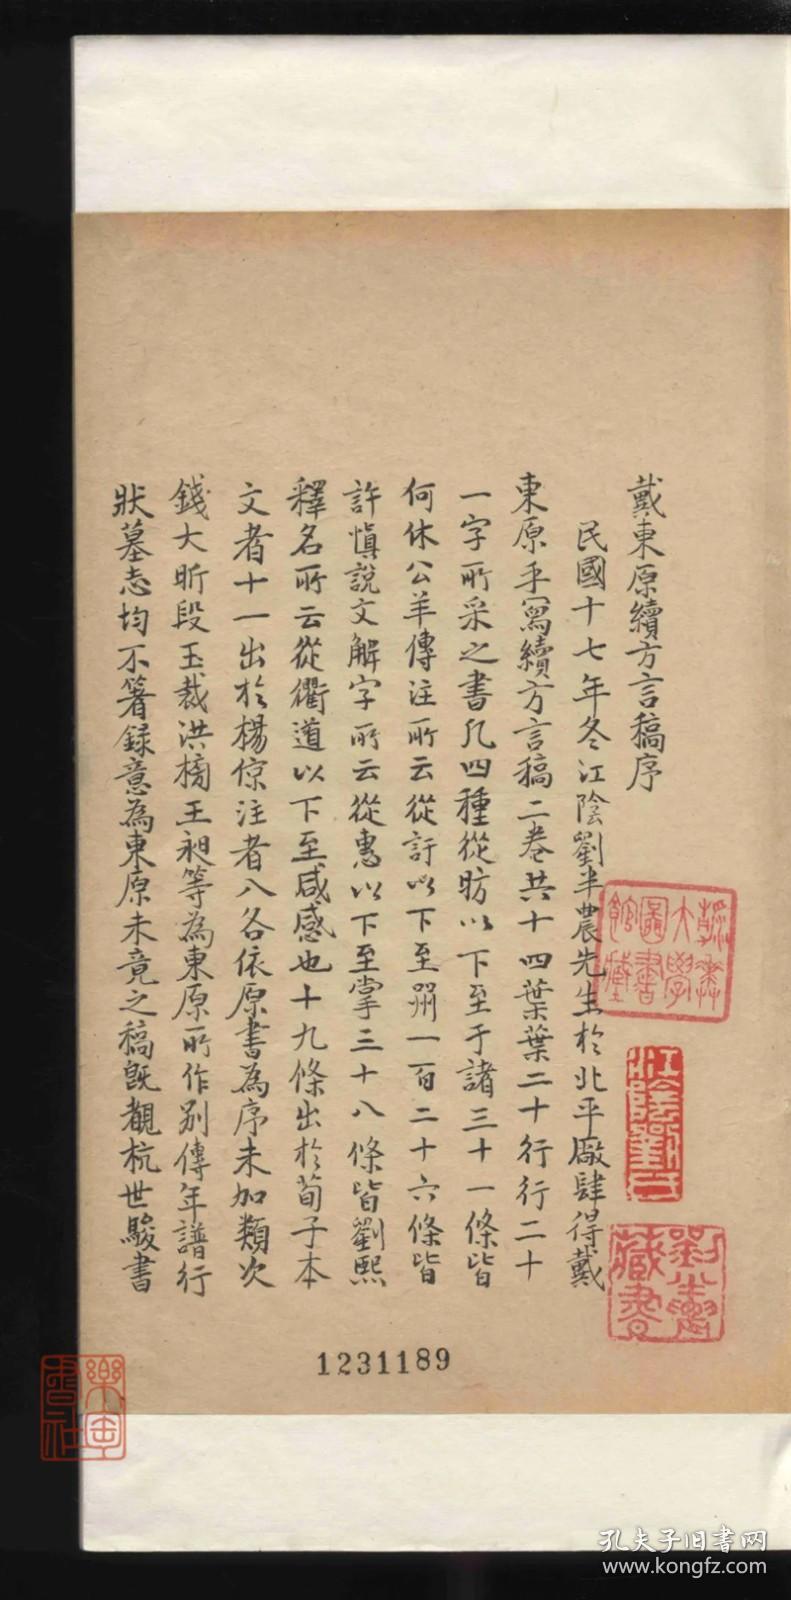 戴東原續方言稿序
民國十七年冬江陰劉半農先生於北平廠肆得戴
東原手寫續方言稿二卷共十四葉葉二十行行二十
一字所采之書凡四種從昉以下至于諸三十一條皆
何休公羊傳注所云從訏以下至㶅一百二十六條皆
許慎說文解字所云從惠以下至掌三十八條皆劉熙
釋名所云從衢道以下至咸感也十九條出於荀子本
文者十一出於楊倞注者八各依原書為序未加類次
錢大昕段玉裁洪榜王昶等為東原所作別傳年譜行
狀墓志均不箸録意為東原未竟之稿既觀杭世駿書
燕京大學圖書館藏
江陰劉氏
劉半農藏書
1231189
孔夫子旧书网
www.kongfz.com